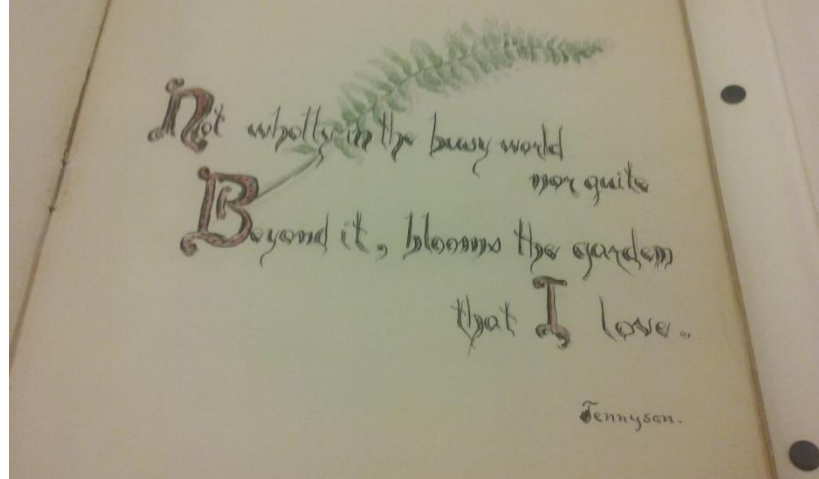 Not wholly in the busy world
nor quite
Beyond it, blooms the garden
that I love.
Tennyson.